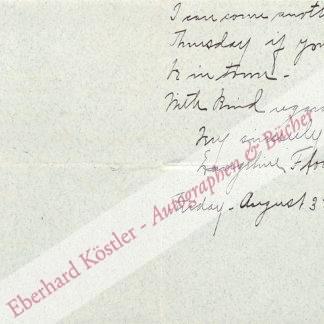 I can come anoth
Thursday if you
be in town -
With kind regar
Very sincerely
Ffo
day - August 3
Eberhard Köstler - Autographen & Bücher